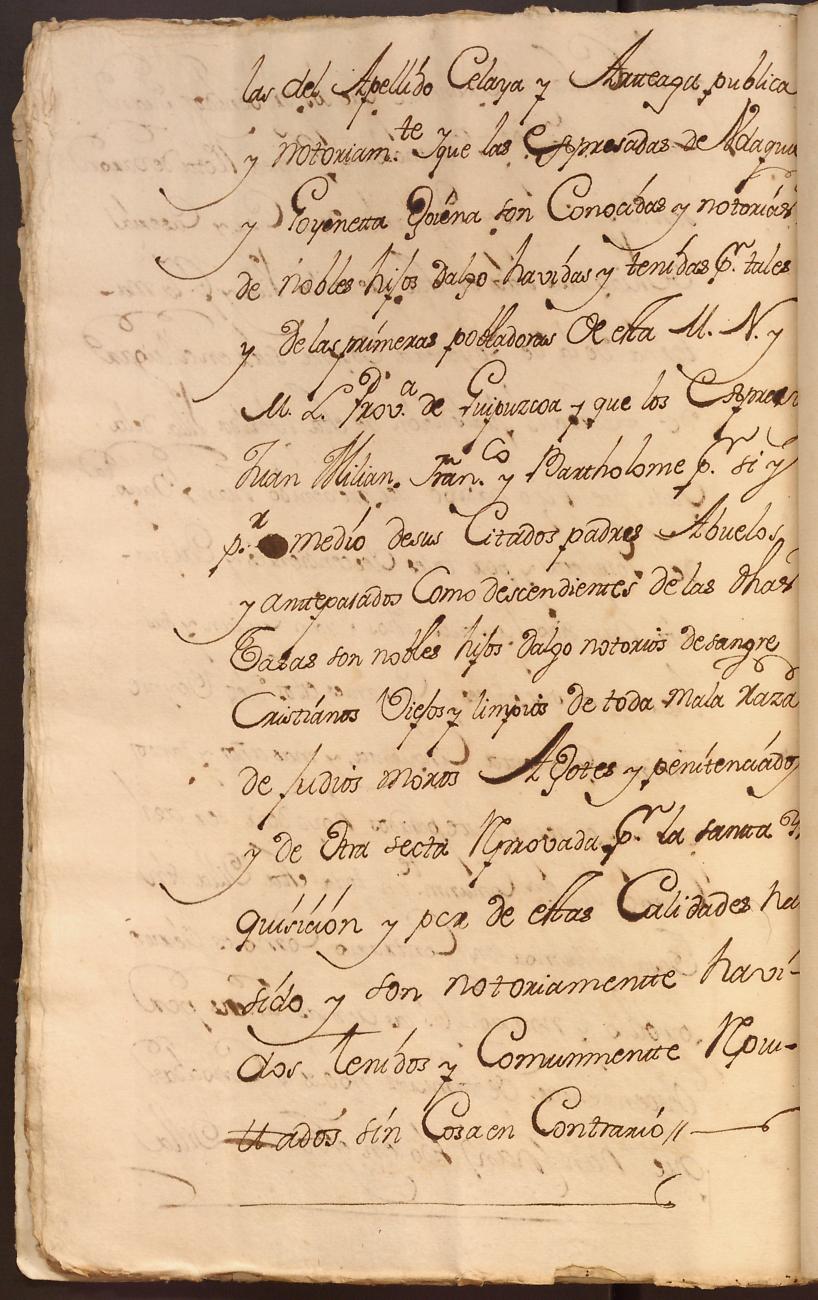 las del Apellido Celaya y Arteaga publica
y notoriam.te y que las Espresadas de Aldaqua
y Goyenetta Goiena son Conocidas y notorias
de nobles hijos dalgo havidas y tenidas p.r tales
y de las primeras pobladoras de esta M. N. y
M. L. Prov.a de Guipuzcoa y que los Espresa
Juan Milian. Fran.co y Bartholome p.r si y
p.r medio de sus Citados padres Abuelos
y antteparados Como descendientes de las dhas
Casas son nobles hijos dalgo notorios de sangre
Cristianos Viejos y limpios de toda mala raza
de judios moros Agotes y penitenciados
y de otra secta Reprovada p.r la santta Yn
quisicion y por de esttas Calidades ha
sido y son notoriamentte havi-
dos tenidos y Comunmentte Repu-
ttados sin Cosa en Contrario //